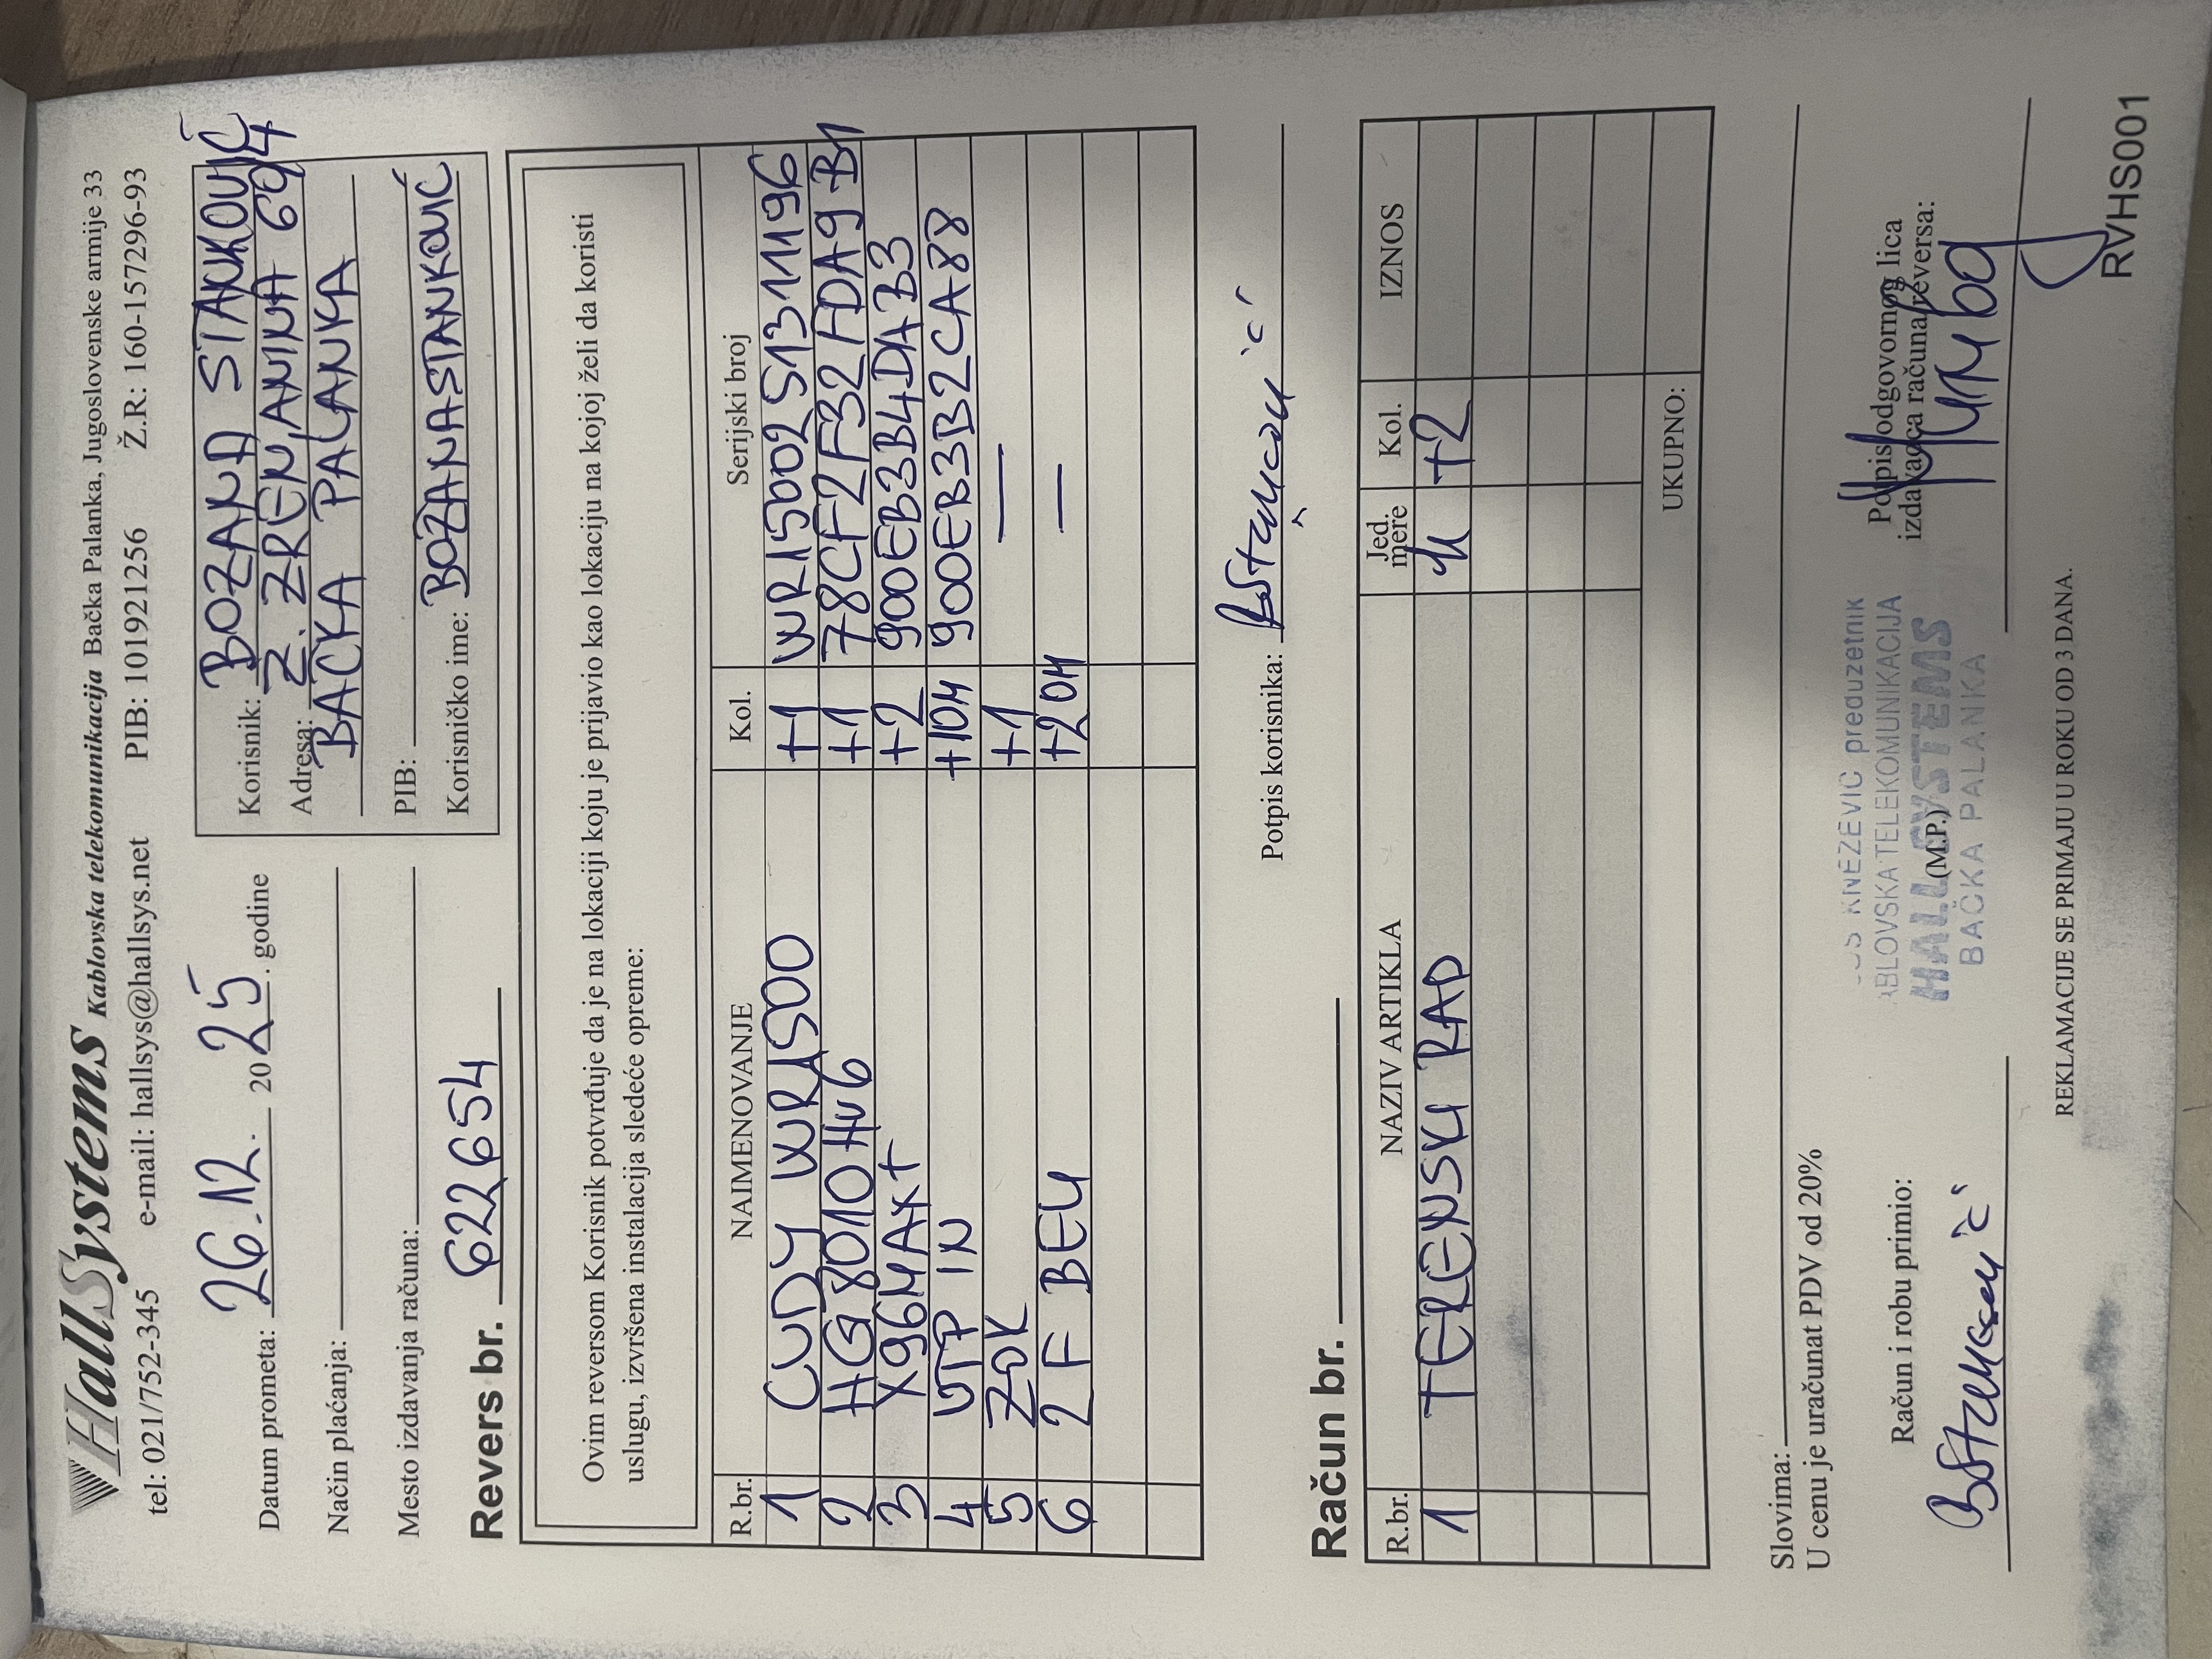 HallSystems Kablovska telekomunikacija Bačka Palanka, Jugoslovenske armije 33
tel: 021/752-345 e-mail: hallsys@hallsys.net PIB: 101921256 Ž.R: 160-157296-93
Datum prometa: 26.12. 2025. godine
Način plaćanja:
Mesto izdavanja računa:
Korisnik: BOŽANA STANKOVIĆ
Adresa: Ž. ZRENJANINA 694
BAČKA PALANKA
PIB:
Korisničko ime: BOŽANASTANKOVIĆ
Revers br. 622654
Ovim reversom Korisnik potvrđuje da je na lokaciji koju je prijavio kao lokaciju na kojoj želi da koristi
uslugu, izvršena instalacija sledeće opreme:
R.br. NAIMENOVANJE Kol. Serijski broj
1 CUDY WR1500 +1 WR1500251311196
2 HG8010Hv6 +1 78CF2F32ADA9B1
3 X96MAX+ +2 900EB3B4DAB3
4 UTP IN +10M 900EB3B2CA88
5 ZOK +1 —
6 2F BELI +20M —
Potpis korisnika: BStanković
Račun br.
R.br. NAZIV ARTIKLA Jed. mere Kol. IZNOS
1 TERENSKI RAD h +2
UKUPNO:
Slovima:
U cenu je uračunat PDV od 20%
Račun i robu primio:
BStanković
KNEŽEVIĆ preduzetnik
ABLOVSKA TELEKOMUNIKACIJA
HALL SYSTEMS
(M.P.)
BAČKA PALANKA
Potpis odgovornog lica
izdavaoca računa/reversa:
REKLAMACIJE SE PRIMAJU U ROKU OD 3 DANA.
RVHS001